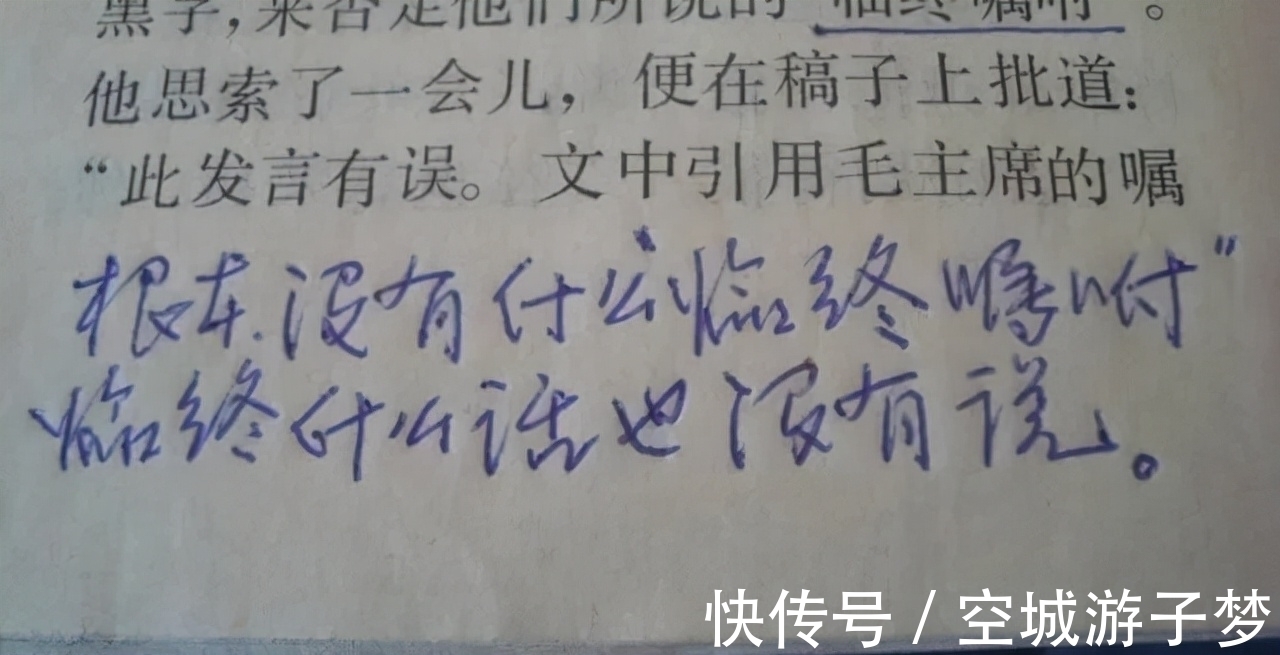 黑字,来否定他们所说的“临终嘱咐”。
他思索了一会儿，便在稿子上批道：
“此发言有误。文中引用毛主席的嘱
根本没有什么临终嘱咐”
临终什么话也没有说。
快传号 / 空城游子梦